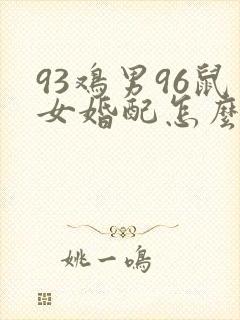 93鸡男96鼠
女婚配怎麼
姚一鳴